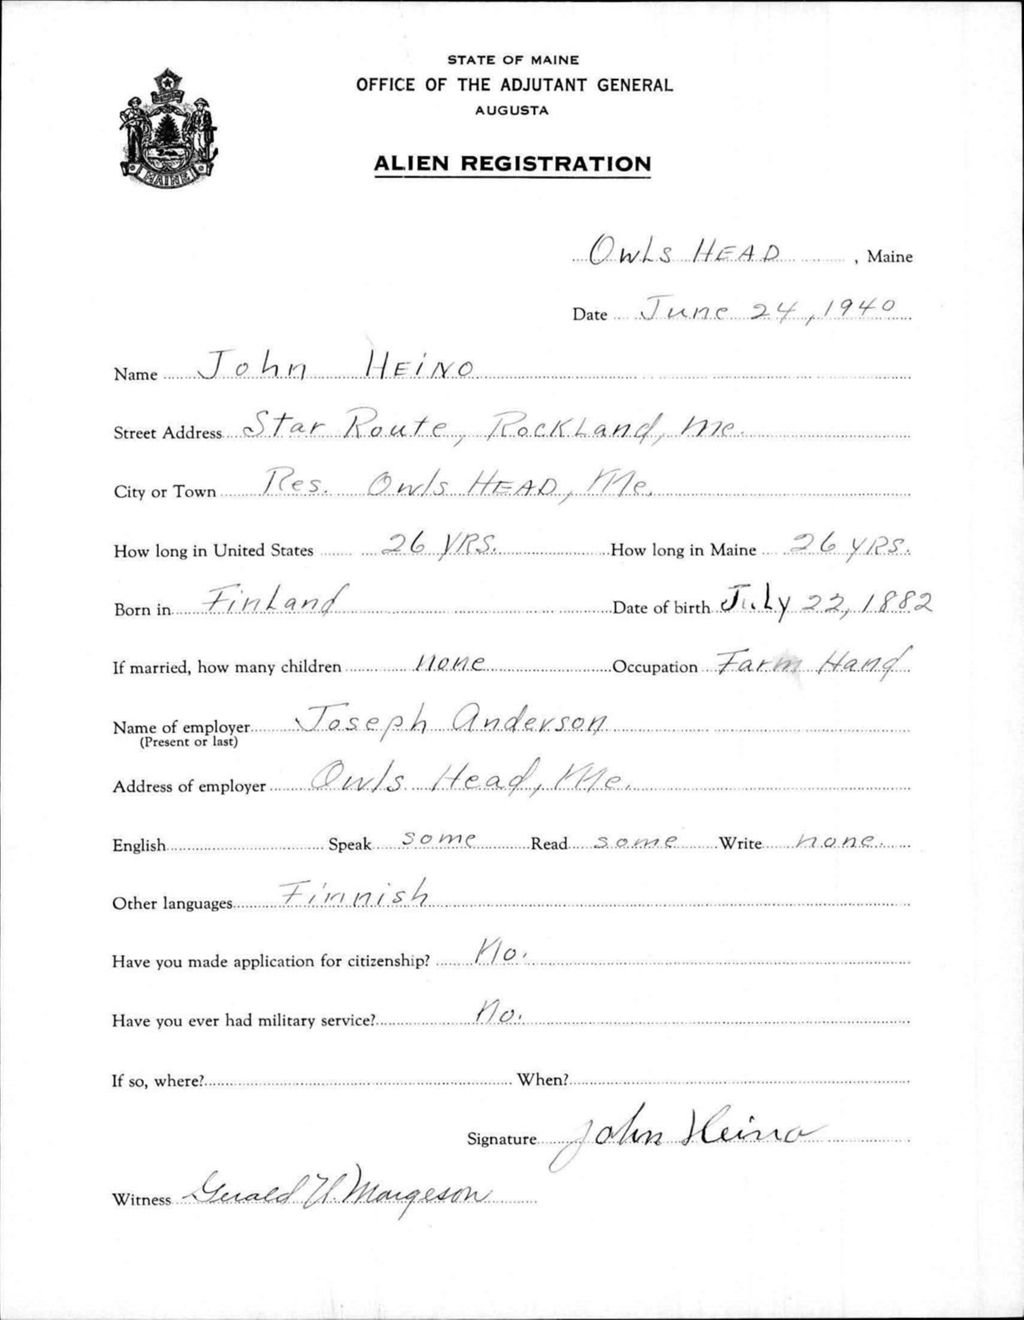 STATE OF MAINE
OFFICE OF THE ADJUTANT GENERAL
AUGUSTA
ALIEN REGISTRATION
MAINE
Owls HEAD, Maine
Date June 24, 1940
Name John HEiNO
Street Address Star Route, Rockland, Me.
City or Town Res. Owls HEAD, Me.
How long in United States 26 YRS. How long in Maine 26 YRS.
Born in Finland Date of birth July 22, 1882
If married, how many children none Occupation Farm Hand
Name of employer Joseph Anderson
(Present or last)
Address of employer Owls Head, Me.
English Speak some Read some Write none.
Other languages Finnish
Have you made application for citizenship? No.
Have you ever had military service? No.
If so, where? When?
Signature John Heino
Witness Gerald U. Margeson